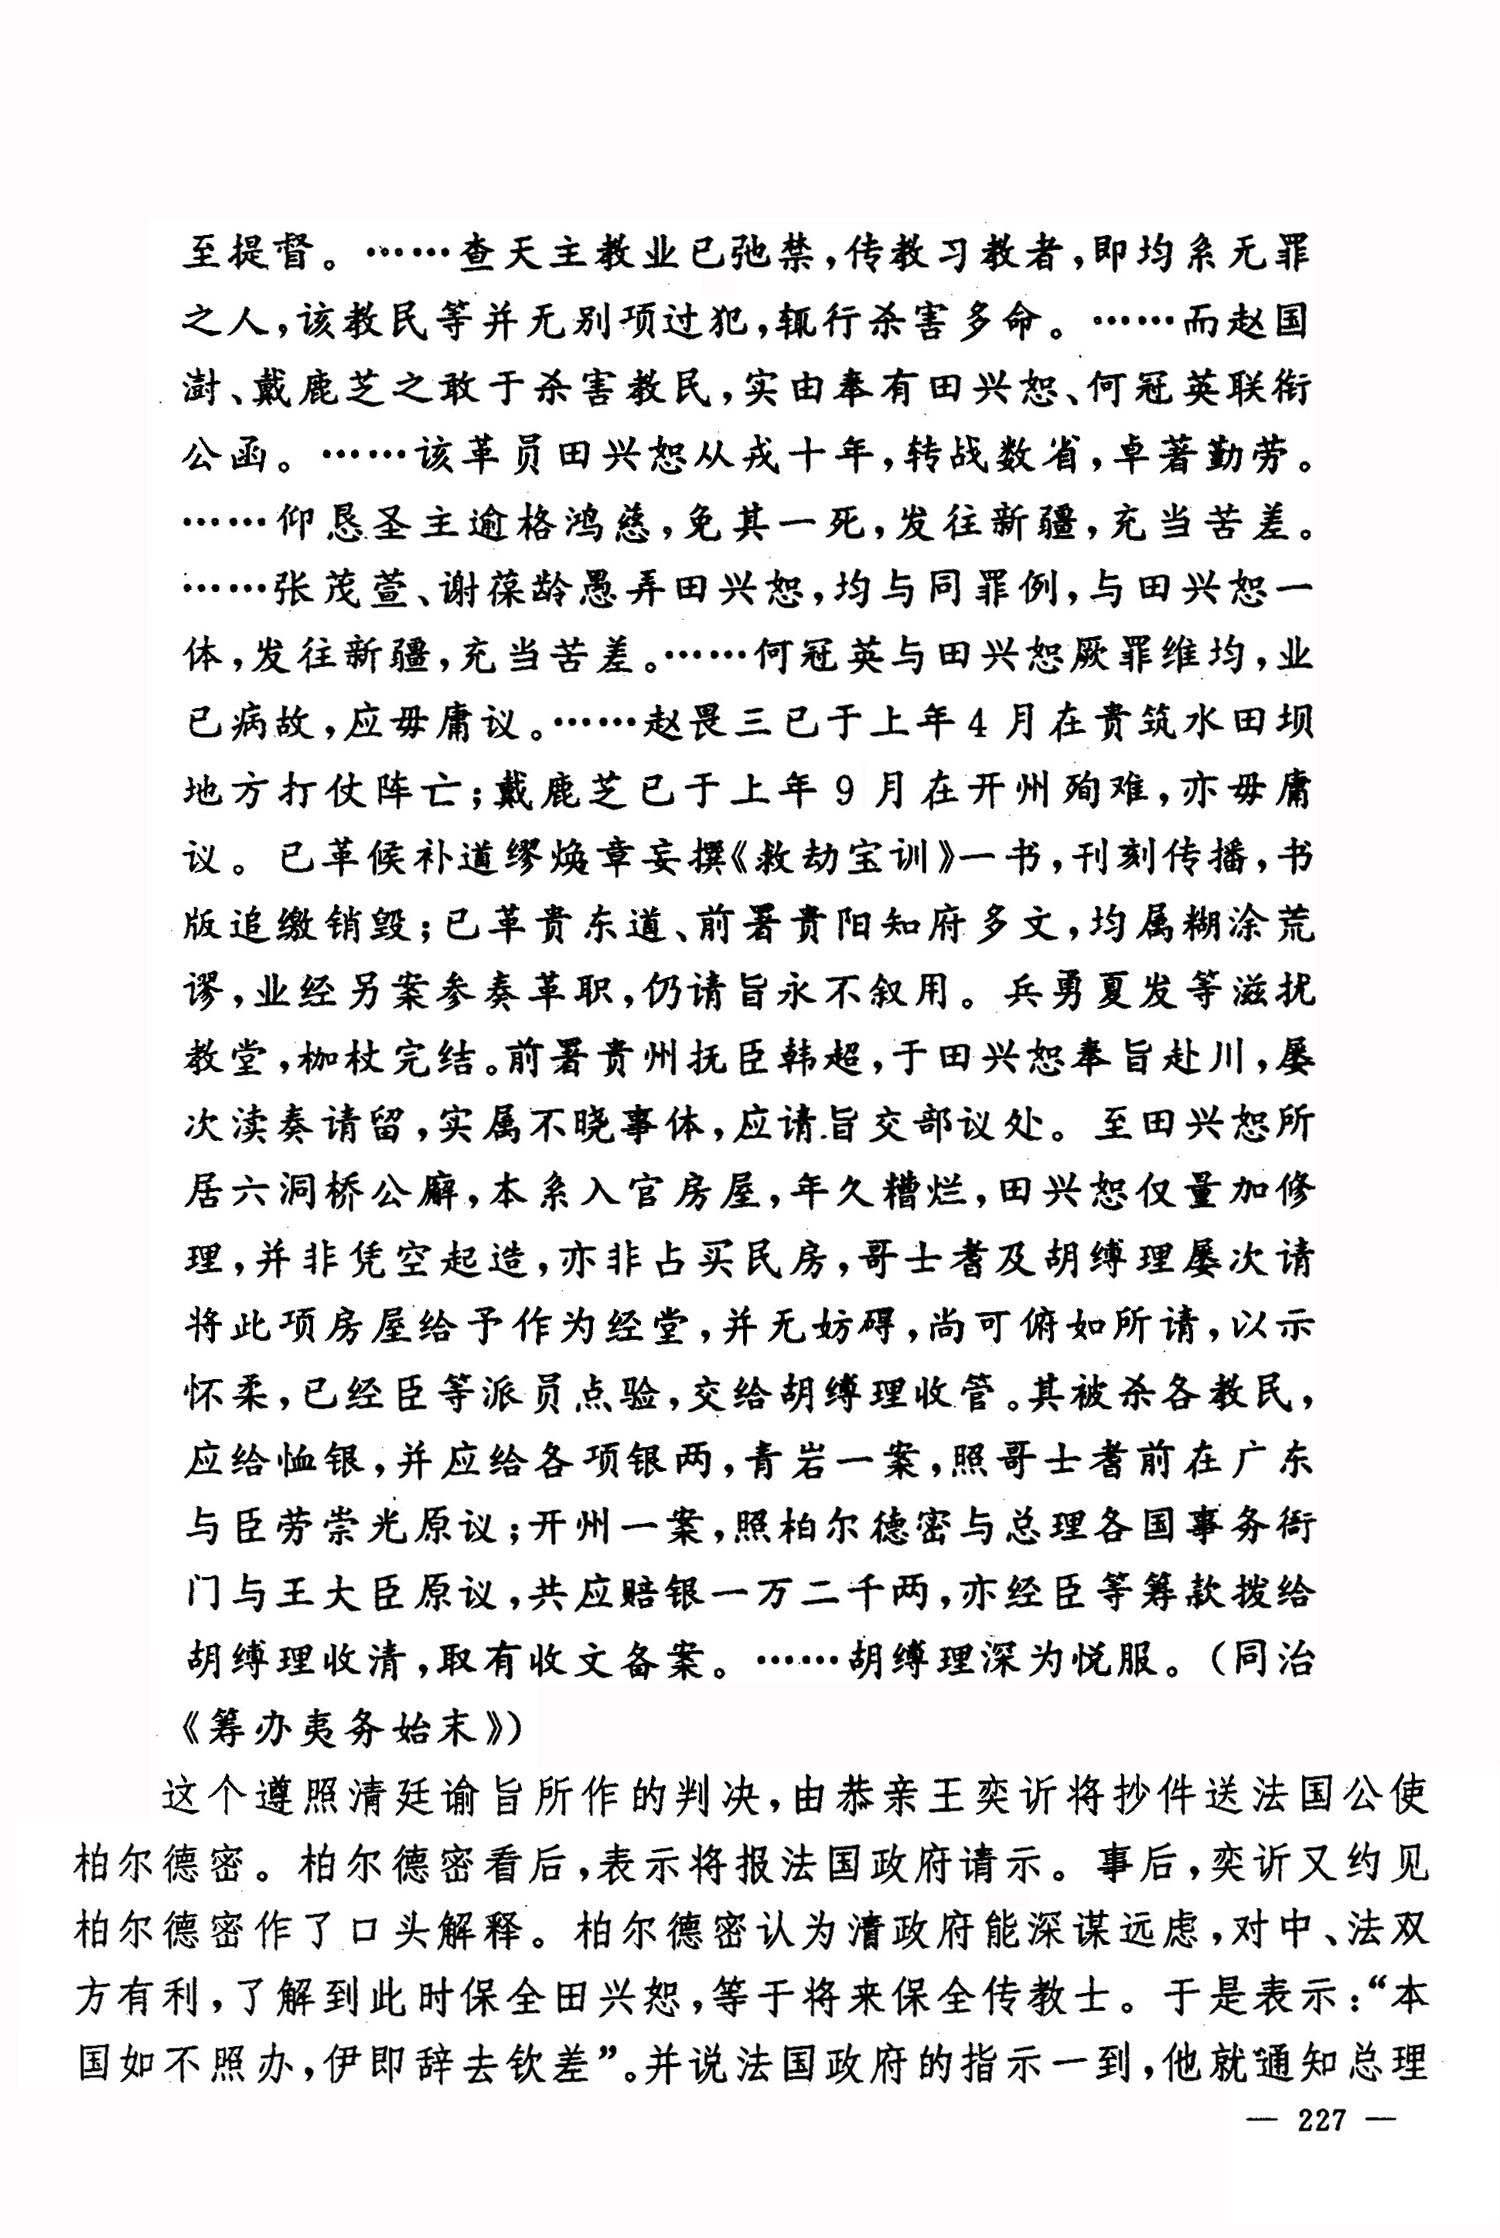 至提督。……查天主教业已弛禁，传教习教者，即均系无罪
之人，该教民等并无别项过犯，辄行杀害多命。……而赵国
澍、戴鹿芝之敢于杀害教民，实由奉有田兴恕、何冠英联衔
公函。……该革员田兴恕从戎十年，转战数省，卓著勤劳。
……仰恳圣主逾格鸿慈，免其一死，发往新疆，充当苦差。
……张茂萱、谢葆龄愚弄田兴恕，均与同罪例，与田兴恕一
体，发往新疆，充当苦差。……何冠英与田兴恕厥罪维均，业
已病故，应毋庸议。……赵畏三已于上年4月在贵筑水田坝
地方打仗阵亡；戴鹿芝已于上年9月在开州殉难，亦毋庸
议。已革候补道缪焕章妄撰《救劫宝训》一书，刊刻传播，书
版追缴销毁；已革贵东道、前署贵阳知府多文，均属糊涂荒
谬，业经另案参奏革职，仍请旨永不叙用。兵勇夏发等滋扰
教堂，枷杖完结。前署贵州抚臣韩超，于田兴恕奉旨赴川，屡
次渎奏请留，实属不晓事体，应请旨交部议处。至田兴恕所
居六洞桥公廨，本系入官房屋，年久糟烂，田兴恕仅量加修
理，并非凭空起造，亦非占买民房，哥士耆及胡缚理屡次请
将此项房屋给予作为经堂，并无妨碍，尚可俯如所请，以示
怀柔，已经臣等派员点验，交给胡缚理收管。其被杀各教民，
应给恤银，并应给各项银两，青岩一案，照哥士耆前在广东
与臣劳崇光原议；开州一案，照柏尔德密与总理各国事务衙
门与王大臣原议，共应赔银一万二千两，亦经臣等筹款拨给
胡缚理收清，取有收文备案。……胡缚理深为悦服。（同治
《筹办夷务始末》）
这个遵照清廷谕旨所作的判决，由恭亲王奕䜣将抄件送法国公使
柏尔德密。柏尔德密看后，表示将报法国政府请示。事后，奕䜣又约见
柏尔德密作了口头解释。柏尔德密认为清政府能深谋远虑，对中、法双
方有利，了解到此时保全田兴恕，等于将来保全传教士。于是表示：“本
国如不照办，伊即辞去钦差”。并说法国政府的指示一到，他就通知总理
— 227 —